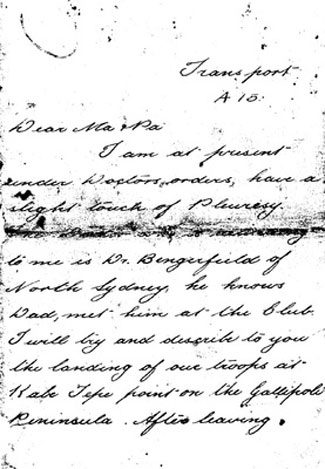 Transport
A 15.
Dear Ma & Pa
I am at present
under Doctors, orders, have a
slight touch of Pleuresy.
to me is Dr. Bengerfield of
North Sydney, he knows
Dad, met him at the Club.
I will try and describe to you
the landing of our troops at
Kabe Tepe point on the Gallipoli
Peninsula. After leaving.